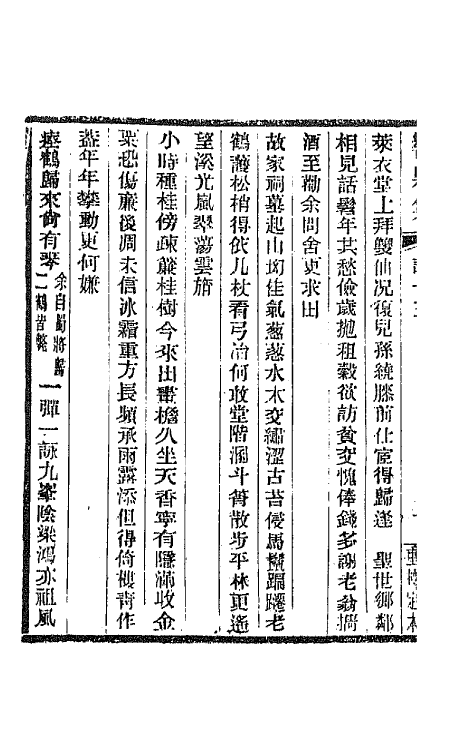 萊衣堂上拜雙仙况復兒孫繞膝前仕宦得歸逢　聖世鄉鄰
相見話髫年其愁儉歲拋租穀欲訪貧交愧俸錢多謝老翁攜
酒至勸余問舍更求田
故家祠墓起山坳佳氣葱葱水木交繡澀古苔侵馬鬛蹁躚老
鶴護松梢得依几杖看弓冶何敢堂階溷斗筲散步平林更遙
望溪光嵐翠蕩雲旓
小時種桂傍疎簾桂樹今來出畫檐久坐天香寧有隱滿收金
粟恐傷廉後凋未信冰霜重方長頻承雨露添但得倚樓青作
蓋年年攀動更何嫌
瘞鶴歸來尙有琴余自蜀將歸二鶴皆斃一彈一詠九峯陰梁鴻亦祖風